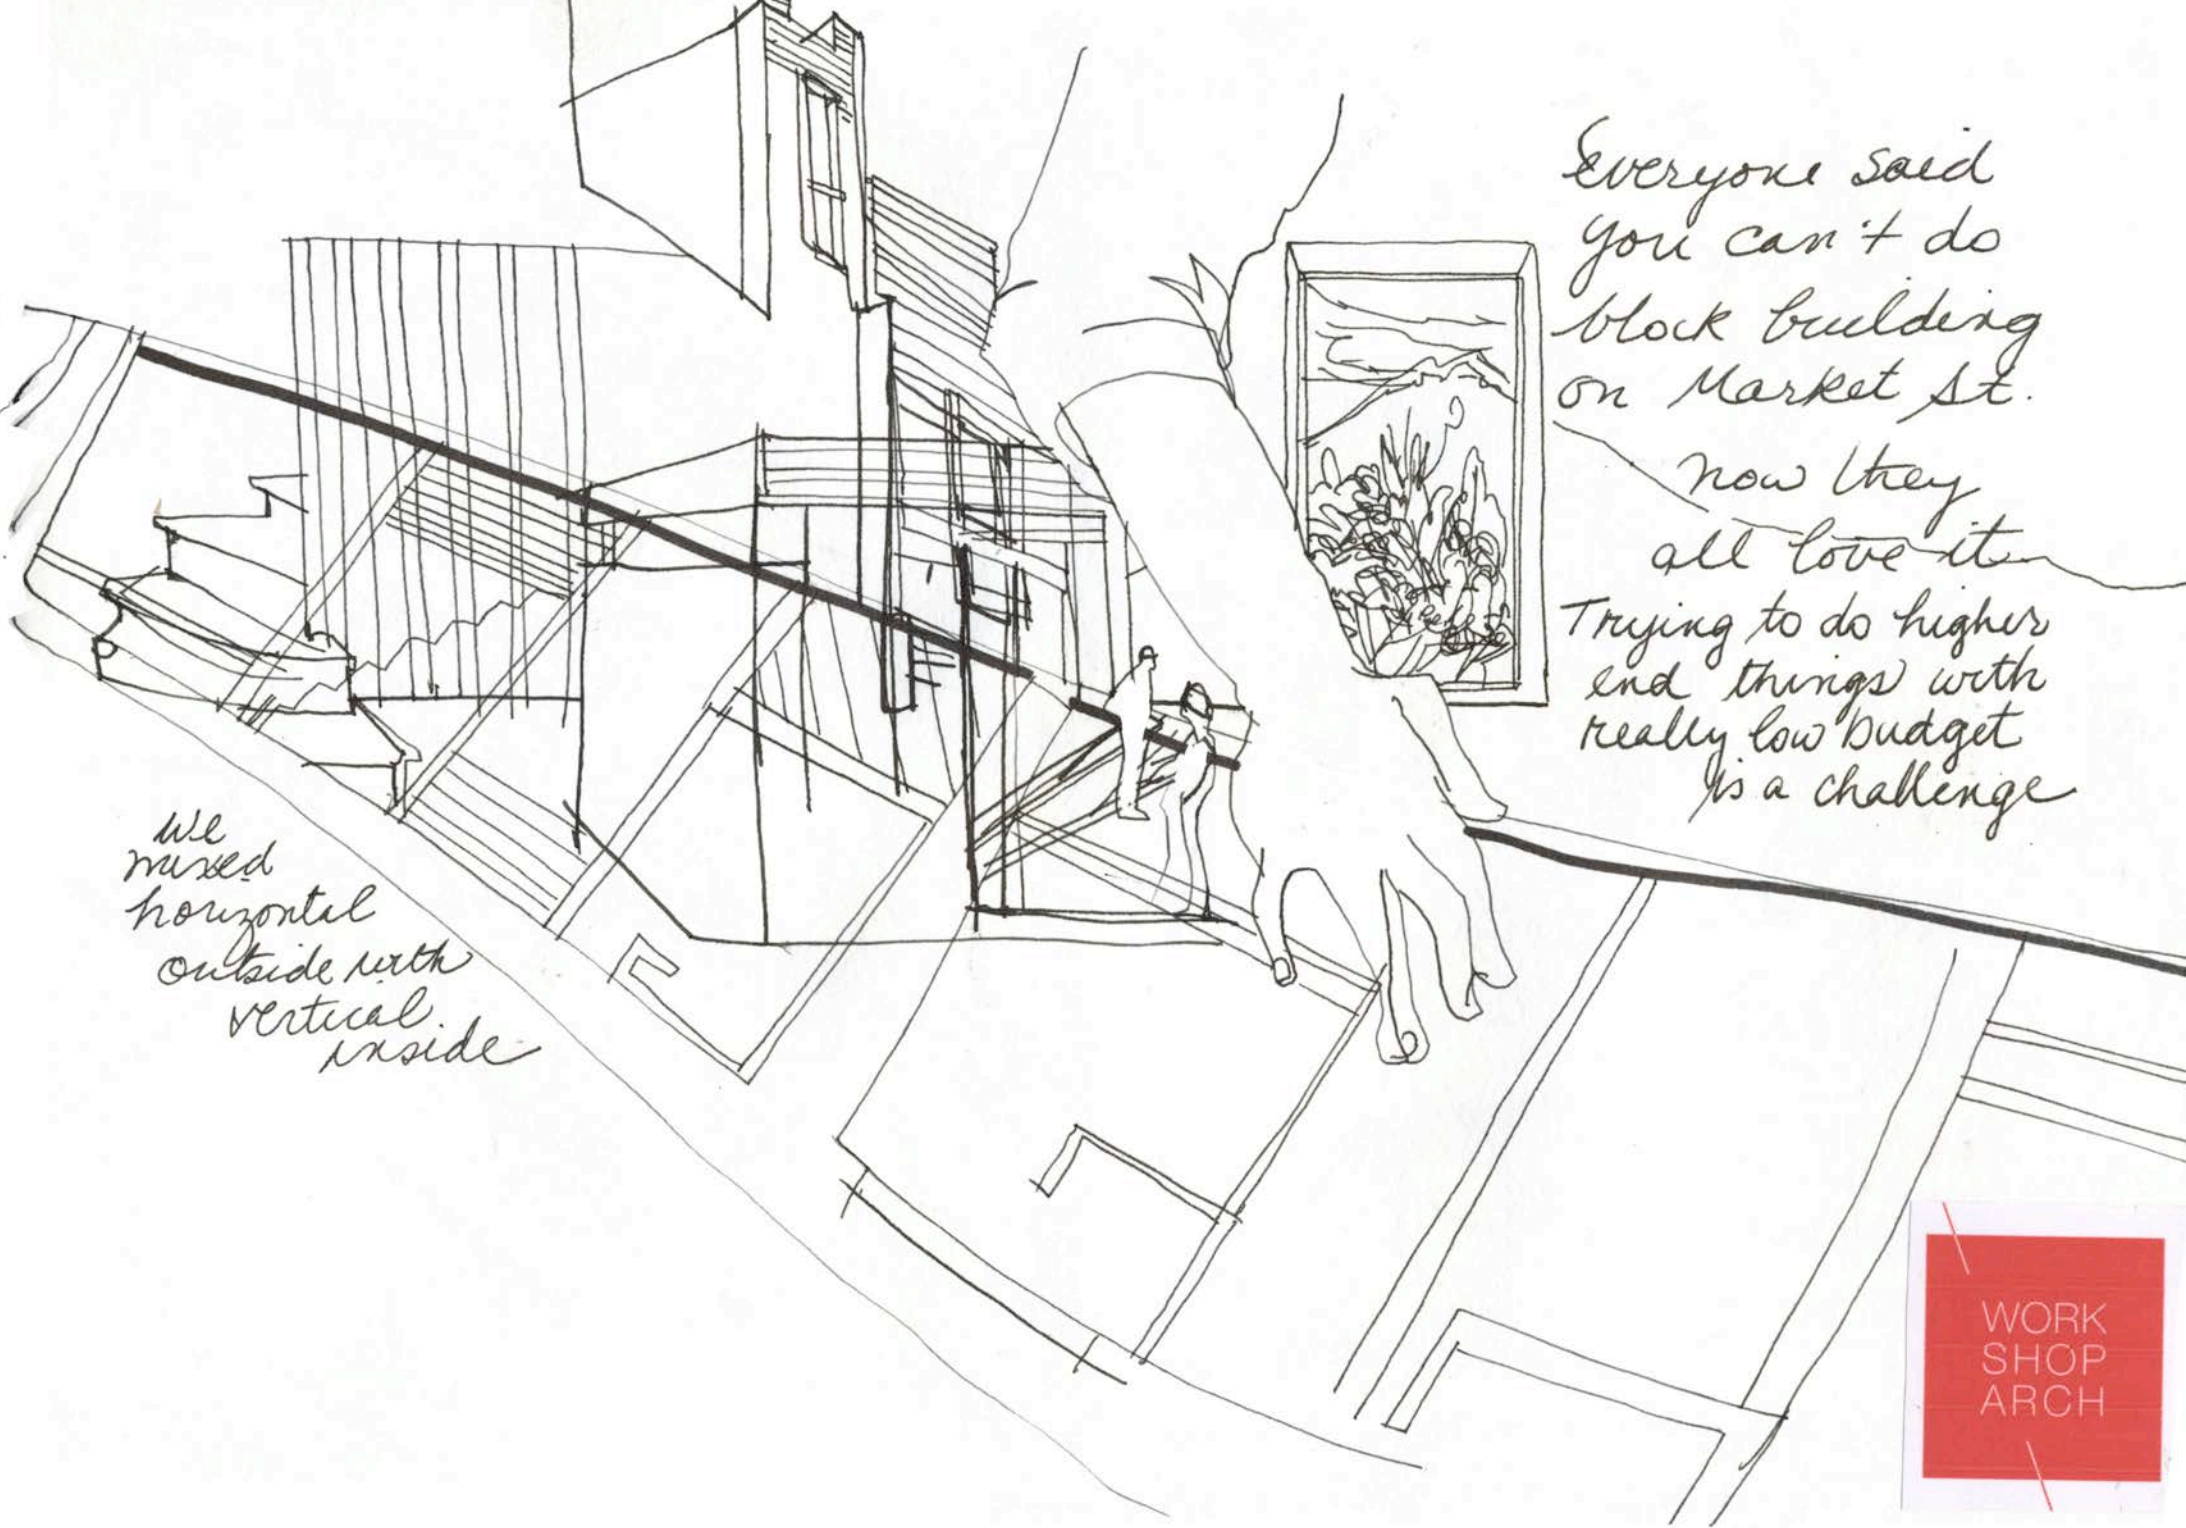 Everyone said
you can't do
block building
on Market St.
now they
all love it
Trying to do higher
end things with
really low budget
is a challenge
we
mixed
horizontal
outside with
vertical
inside
WORK
SHOP
ARCH